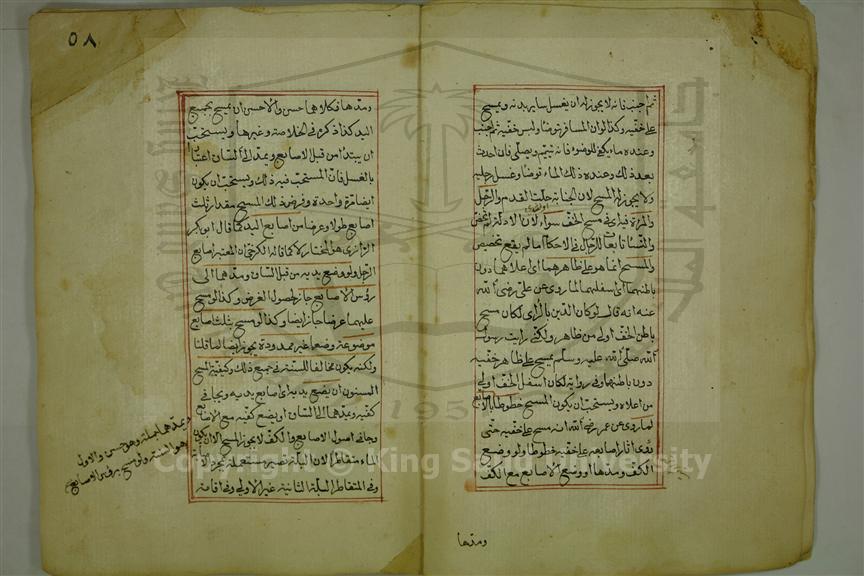 ثم اجنب فانه لا يجوز له ان يغسل ساير بدنه ويمسح
على خفيه وكذا لو ان المسافر توضأ ولبس خفيه ثم اجنب
وعنده ماء يكفي للوضوء فانه يتيمم ويصلي فان احدث
بعد ذلك وعنده ذلك الماء توضأ وغسل رجليه
ولا يجوز له المسح لان الجنابة حلت القدم والرجل
والمرأة في مسح الخف سواء لان الادلة
والنساء تابعات للرجال في الاحكام ما لم يقع تخصيص
والمسح انما هو على ظاهرهما اي اعلاهما دون
باطنهما اي اسفلهما لما روي عن علي رضي الله
عنه انه قال لو كان الدين بالراي لكان مسح
باطن الخف اولى من ظاهره ولكني رايت رسول
الله صلى الله عليه وسلم يمسح على ظاهر خفيه
دون باطنهما وفي رواية لكان اسفل الخف اولى
من اعلاه ويستحب ان يكون المسح خطوطا بالاصابع
لما روي عن عمر رضي الله انه مسح على خفيه حتى
رؤي اثار اصابعه على خفيه خطوطا ولو وضع
الكف ومدها او وضع الاصابع مع الكف
ومدها
٥٨
ومدها فكلاهما حسن والاحسن ان يمسح بجميع
اليد كذا ذكره في الخلاصة وغيرها ويستحب
ان يبتدأ من قبل الاصابع ويمد الى الساق اعتبارا
بالغسل فان المستحب فيه ذلك ويستحب ان يكون
ايضا مرة واحدة وفرض ذلك المسح مقدار ثلث
اصابع طولا وعرضا من اصابع اليد كما قال ابو بكر
الرازي هو المختار لا كما قاله الكرخي ان المعتبر اصابع
الرجل ولو وضع يديه من قبل الساق ومدهما الى
رؤس الاصابع جاز لحصول الفرض وكذا لو مسح
عليهما عرضا جاز ايضا وكذا لو مسح بثلث اصابع
موضوعة وضعا غير ممدودة يجوز ايضا لما قلنا
ولكنه يكون مخالفا للسنة في جميع ذلك وكيفية المسح
المسنون ان يضع يديه اي اصابع يديه ويجافي
كفيه ويمدهما الى الساق او يضع كفيه مع الاصابع
ويمدهما جملة وهو حسن والاول
هو السنة ولو مسح برؤس الاصابع
وجافى اصول الاصابع والكف لا يجوز المسح الا ان يكون
الماء متقاطرا لان البلة تصير مستعملة بمجرد
وفي المتقاطر البلة الثانية غير الاولى وفي اقامة
Copyright © King Saud University
1957